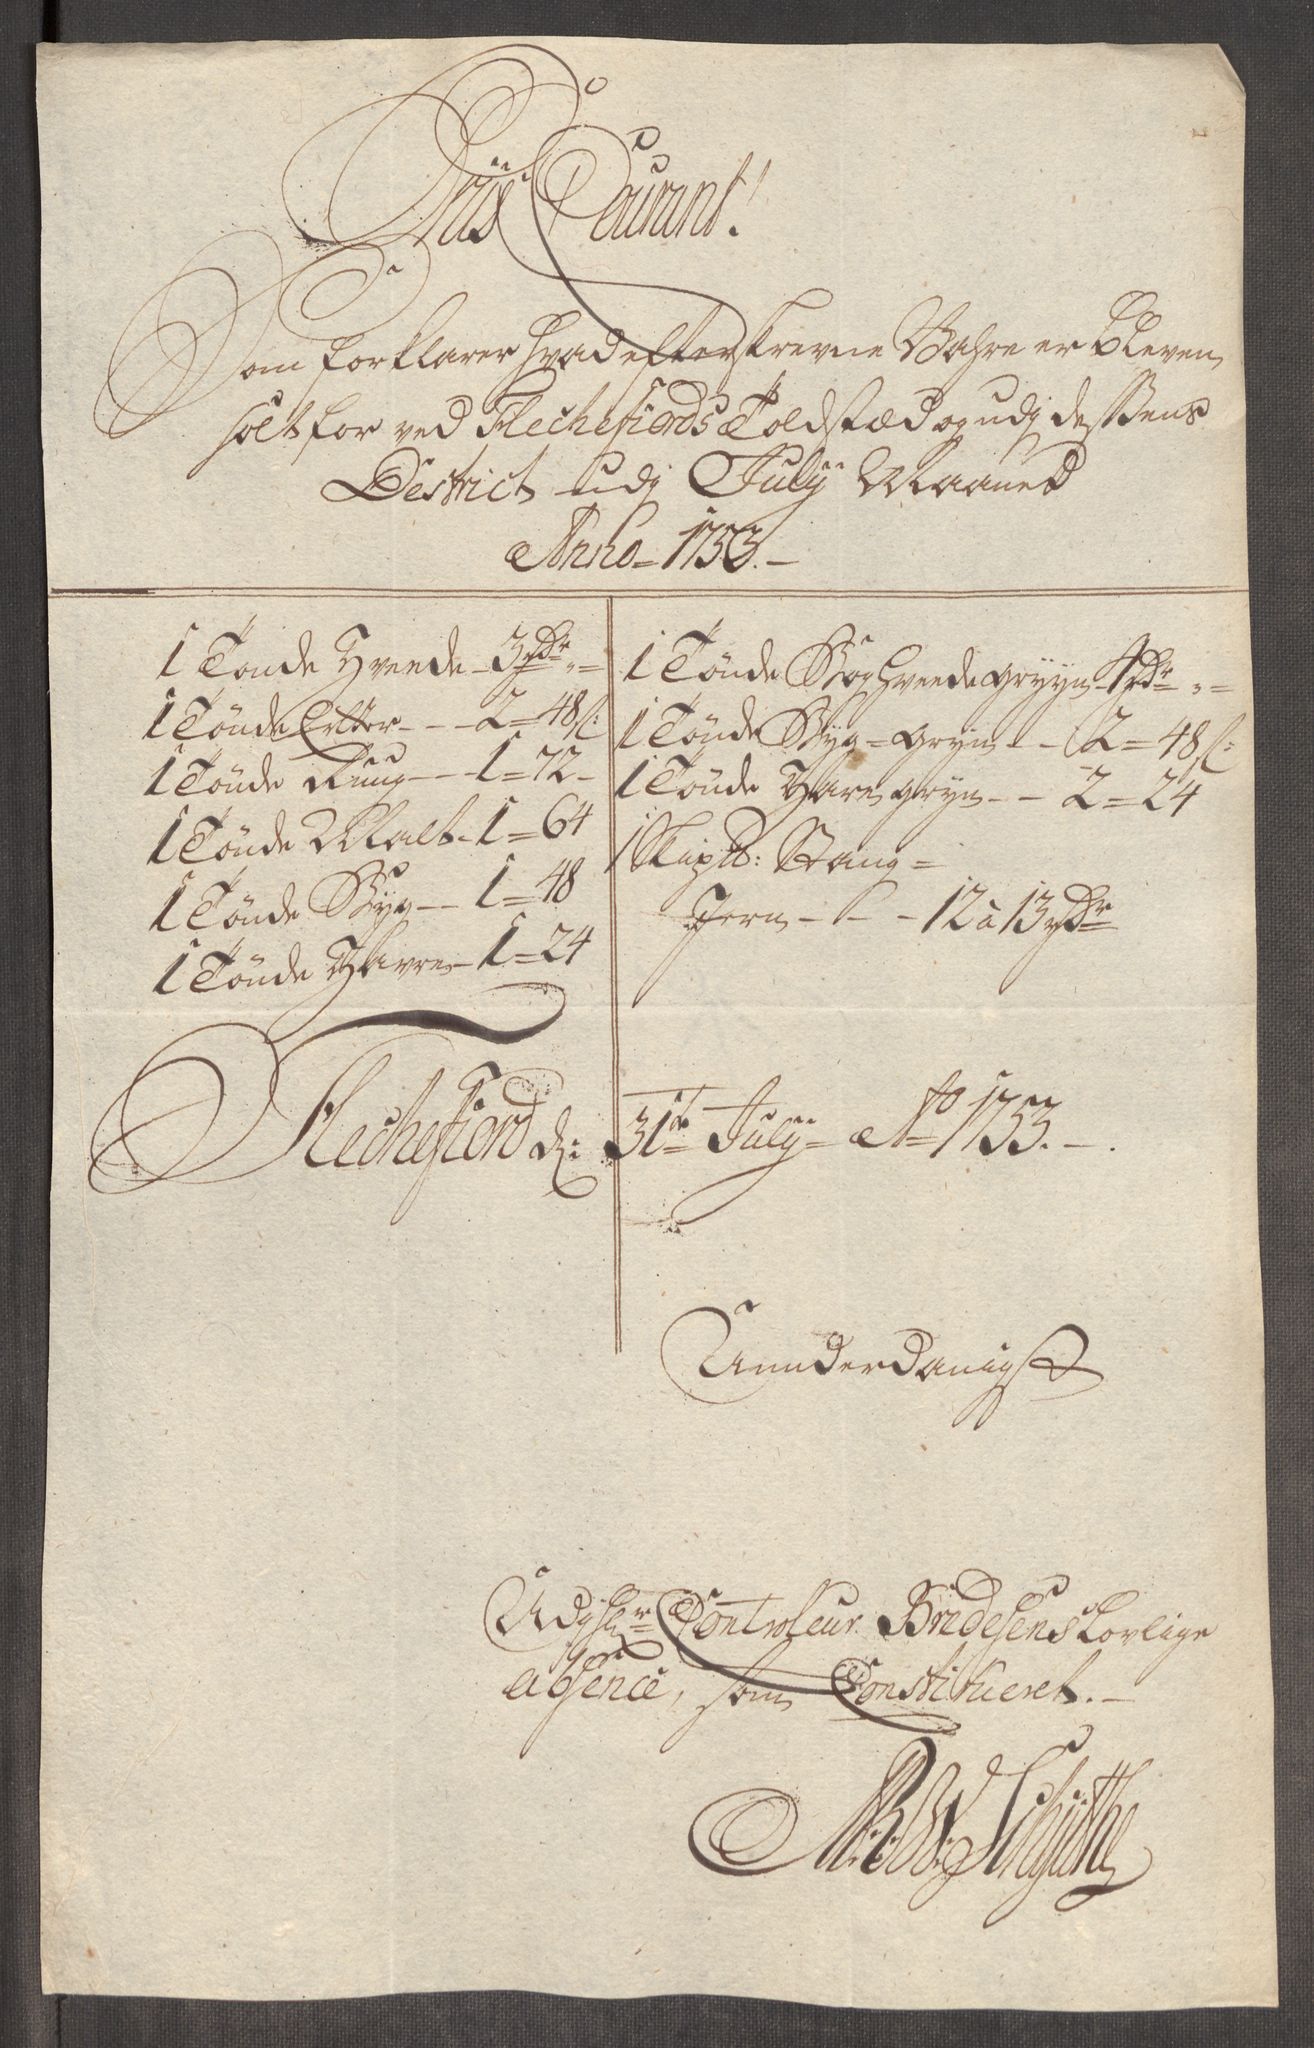 Priis Courant!
Som forklarer hvad efterskrevne Wahre er bleven
solt for ved Flechefiords Toldstæd og udj dessens
District udj July Maaned
Anno = 1753. –
1 Tønde Hvede – 3 rdr „ =
1 Tønde Erter - - - 2 = 48 s:
1 Tønde Ruug - - 1 = 72 –
1 Tønde Malt - 1 = 64
1 Tønde Byg - - 1 = 48
1 Tønde Havre – 1 = 24
1 Tønde Boghveede gryyn – 4 rdr „ =
1 Tønde Byg = gryn - - 2 = 48 s:
1 Tønde Havre gryn - - 2 = 24
1 Skip℔: Stang =
Jern - - - 12 à 13 rdr
Flechefiord d: 31te July = Ao 1753. –
Unnderdanigst
Udj Hr Controleur Bredesens Lovlige
absence, som Constitueret. –
Schütte